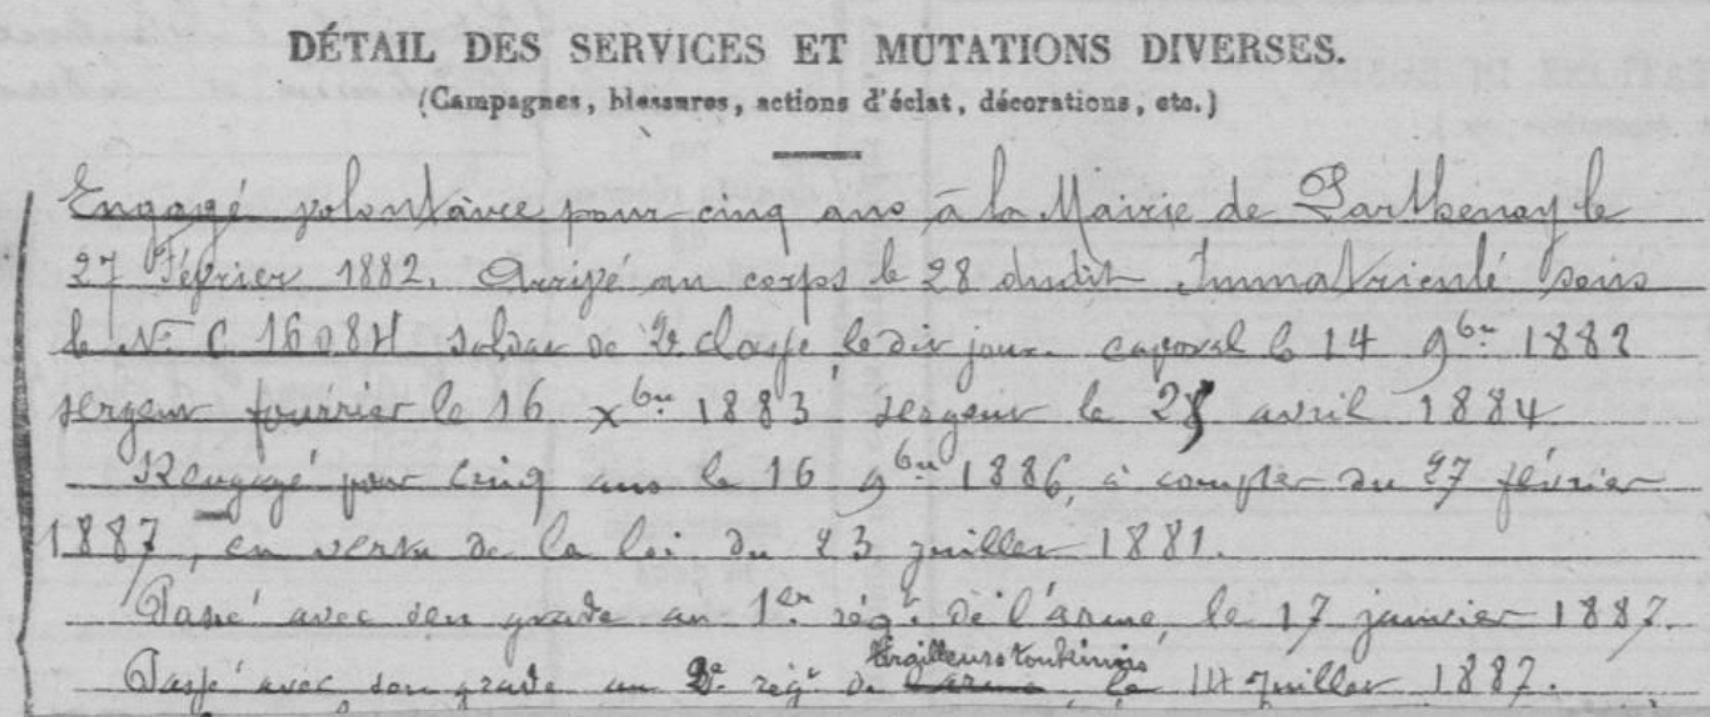 DÉTAIL DES SERVICES ET MUTATIONS DIVERSES.
(Campagnes, blessures, actions d'éclat, décorations, etc.)
Engagé volontaire pour cinq ans à la Mairie de Parthenay le
27 Février 1882. Arrivé au corps le 28 dudit Immatriculé sous
le N° C 16084 soldat de 2e classe, le dit jour. caporal le 14 9bre 1882
sergent fourrier le 16 xbre 1883 sergent le avril 1884
Rengagé pour cinq ans le 16 9bre 1886, à compter du 27 février
1887, en vertu de la loi du 23 juillet 1881.
Passé avec son grade au 1er régt de l'arme, le 17 janvier 1887.
tirailleurs tonkinois
Passé avec son grade au 2e régt de l'arme, le 14 juillet 1887.